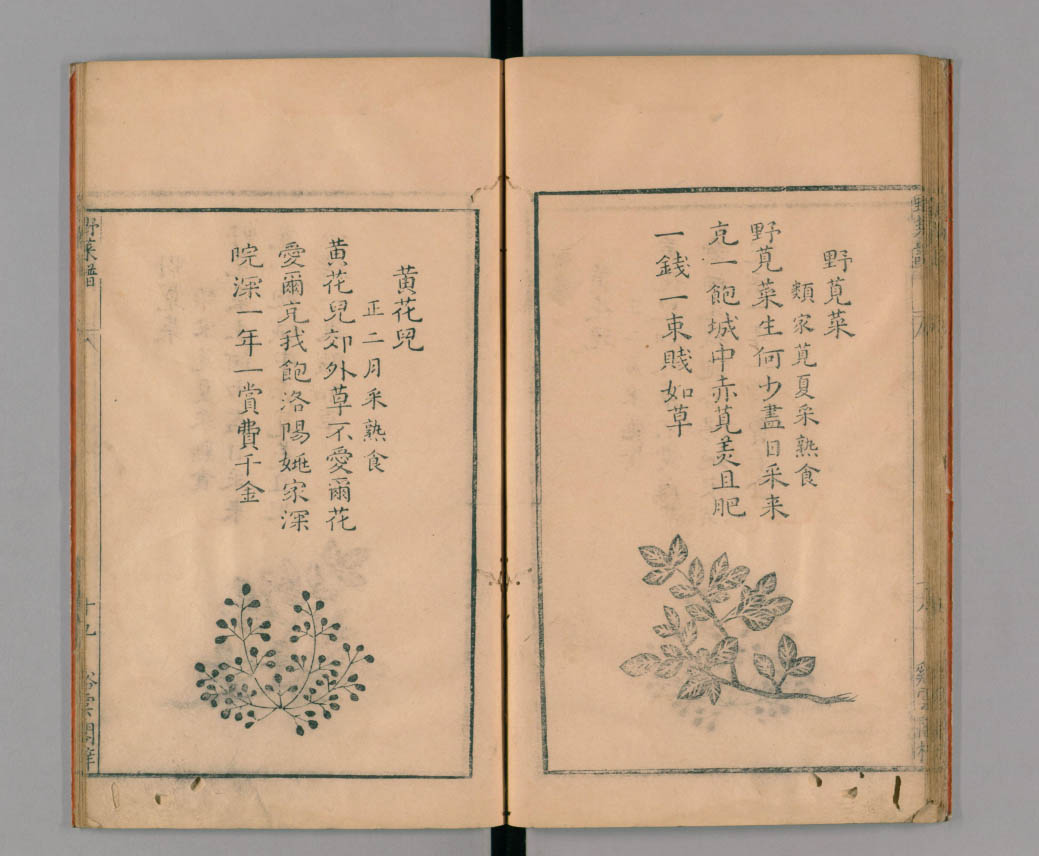 野莧菜
類家莧夏采熟食
野莧菜生何少盡日采来
充一飽城中赤莧美且肥
一錢一束賤如草
黄花兒
正二月采熟食
黄花兒郊外草不愛爾花
愛爾充我飽洛陽姚家深
院深一年一賞費千金
野菜譜
十九